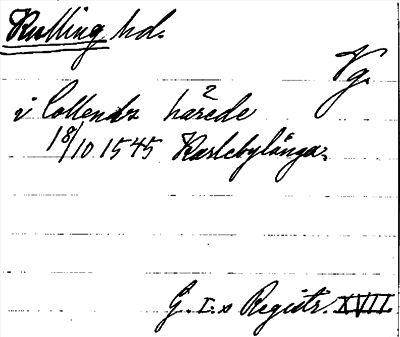 Kulling hd.
Vg.
i Collendz härede
18/10 1545 Karlebylånga.
G. I:s Registr. XVII.